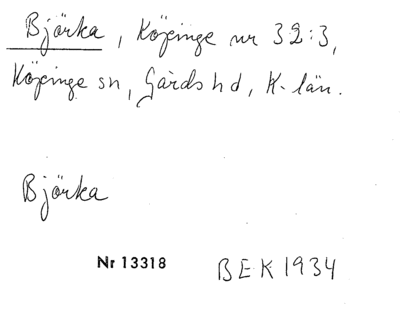 Björka, Köpinge nr 32:3,
Köpinge sn, Gärds hd, K-län.
Björka
Nr 13318 BEK 1934